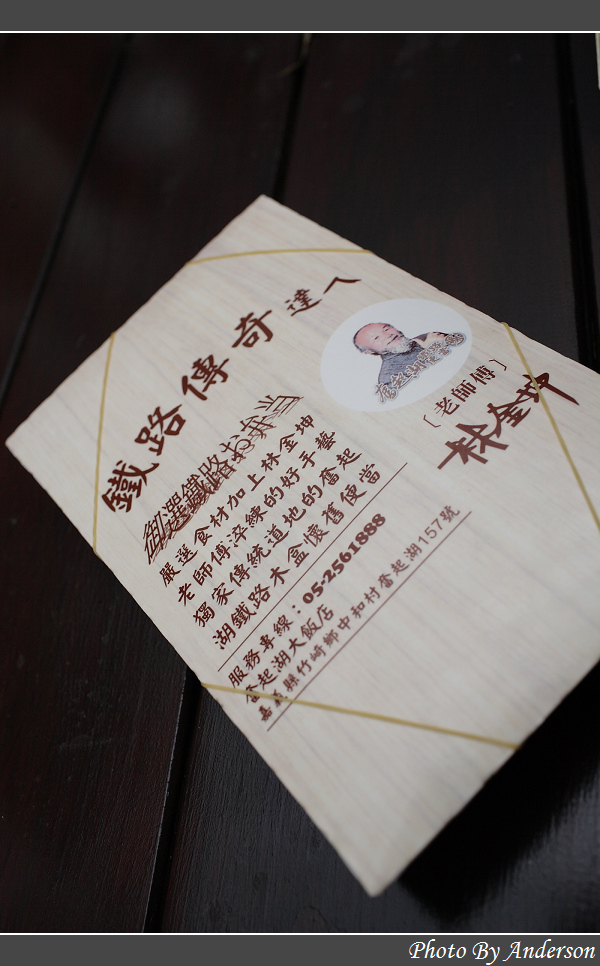 鐵路傳奇達人
御選鐵路お弁当
嚴選食材加上林金坤
老師傅淬練的好手藝
獨家傳統道地的奮起
湖鐵路木盒懷舊便當
服務專線：05-2561888
奮起湖大飯店
嘉義縣竹崎鄉中和村奮起湖157號
〔老師傅〕
林金坤
Photo By Anderson